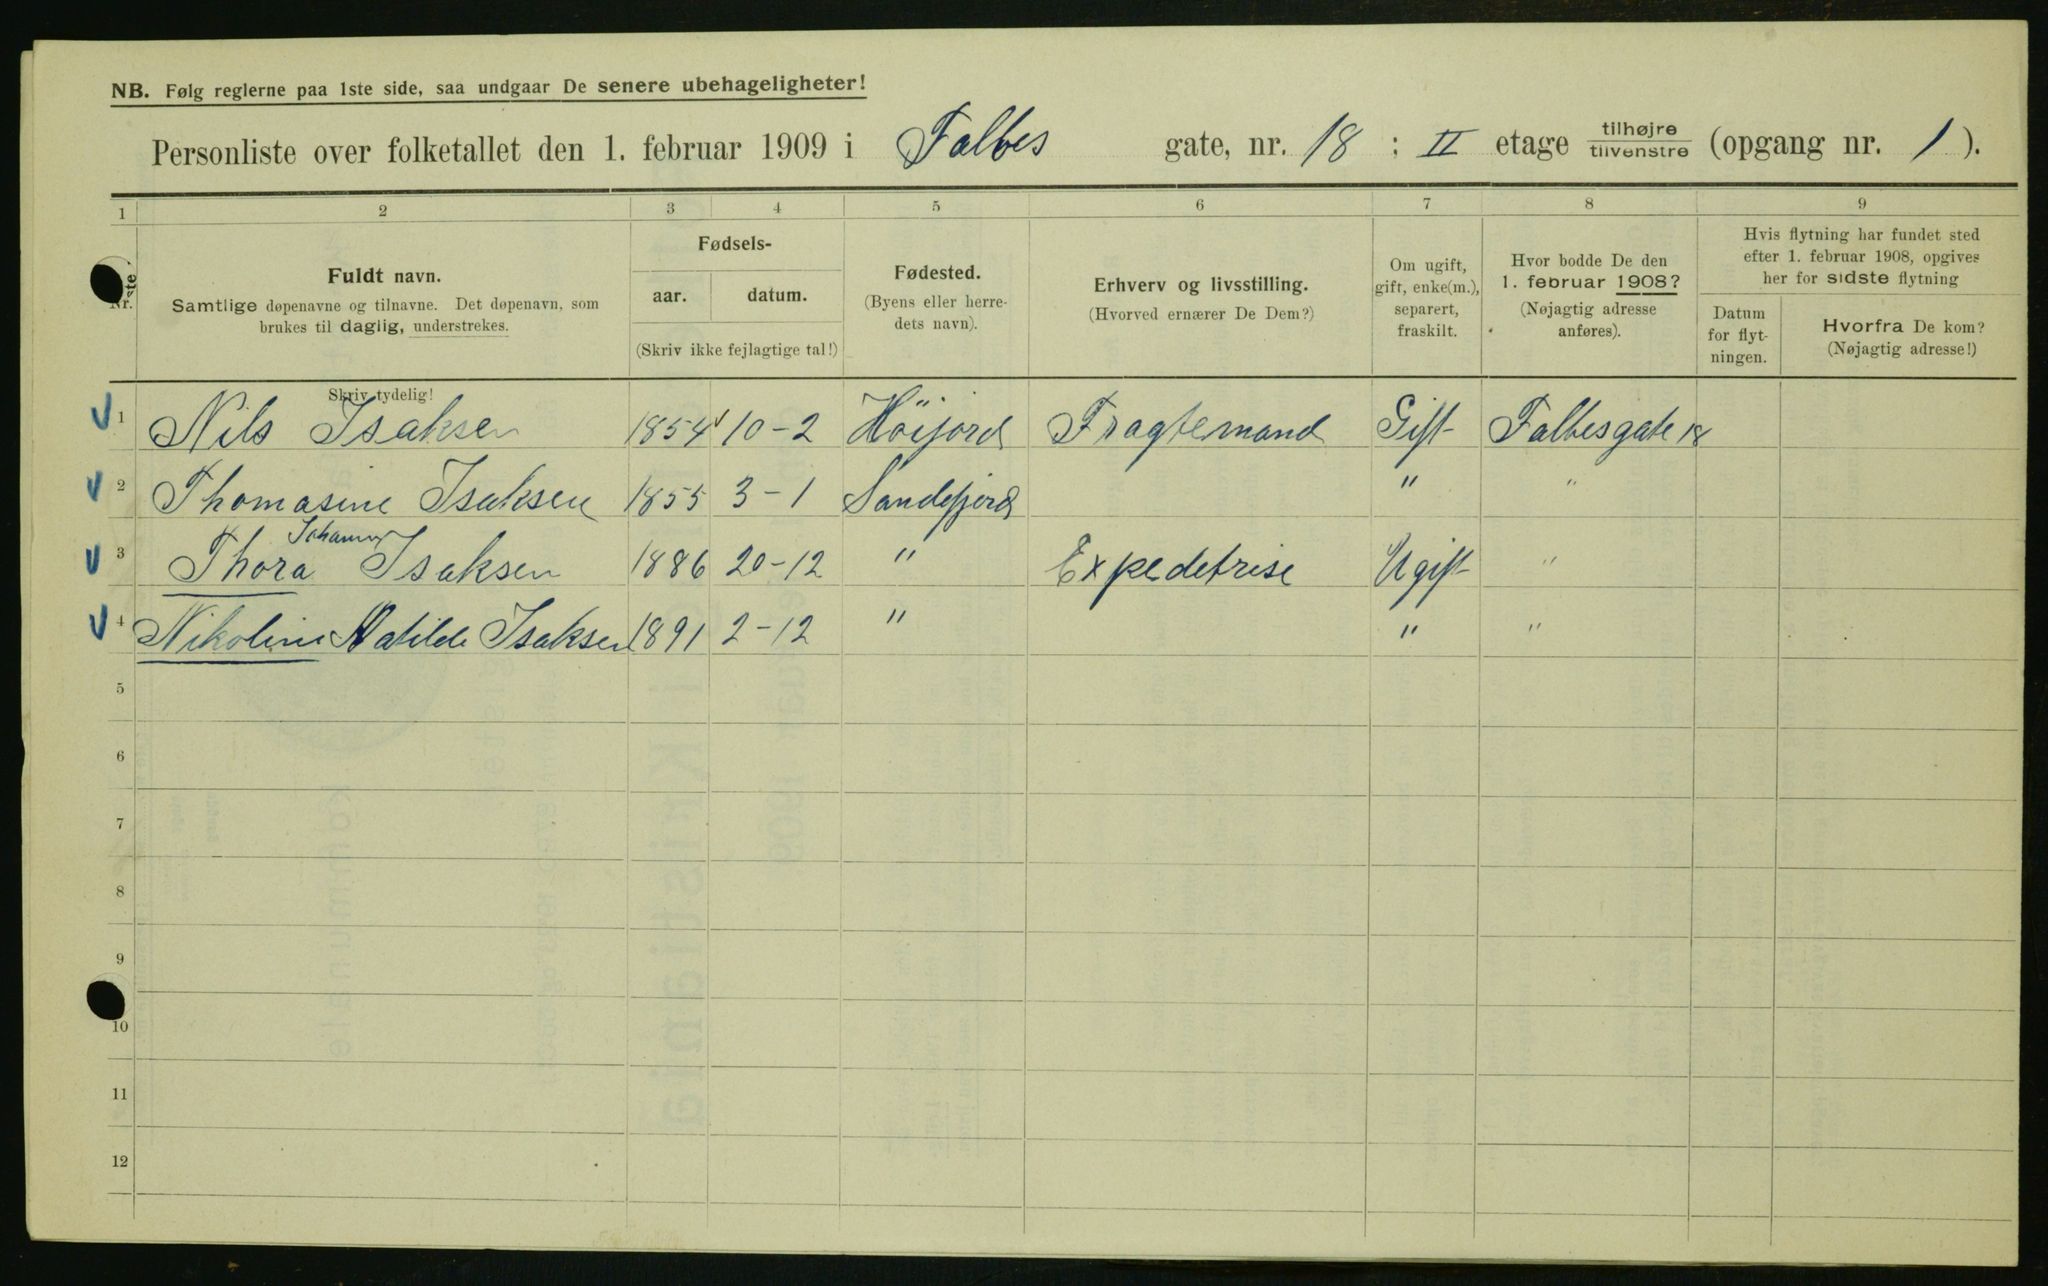 NB. Følg reglerne paa 1ste side, saa undgaar De senere ubehageligheter!
Personliste over folketallet den 1. februar 1909 i Falbes gate, nr. 18 : II etage tilhøjre/tilvenstre (opgang nr. 1).
1 2 3 4 5 6 7 8 9
Nr.
Fuldt navn.
Samtlige døpenavne og tilnavne. Det døpenavn, som
brukes til daglig, understrekes.
Skriv tydelig!
Fødsels-
aar. datum.
(Skriv ikke fejlagtige tal!)
Fødested.
(Byens eller herre-
dets navn).
Erhverv og livsstilling.
(Hvorved ernærer De Dem?)
Om ugift,
gift, enke(m.),
separert,
fraskilt.
Hvor bodde De den
1. februar 1908?
(Nøjagtig adresse
anføres).
Hvis flytning har fundet sted
efter 1. februar 1908, opgives
her for sidste flytning
Datum
for flyt-
ningen.
Hvorfra De kom?
(Nøjagtig adresse!)
1 Nils Isaksen 1854 10-2 Höijord Fragtemand Gift Falbesgate 18
2 Thomasine Isaksen 1855 3-1 Sandefjord " "
3 Thora Isaksen 1886 20-12 " Expedetrise Ugift "
4 Nikoline Matilde Isaksen 1891 2-12 " " "
5
6
7
8
9
10
11
12